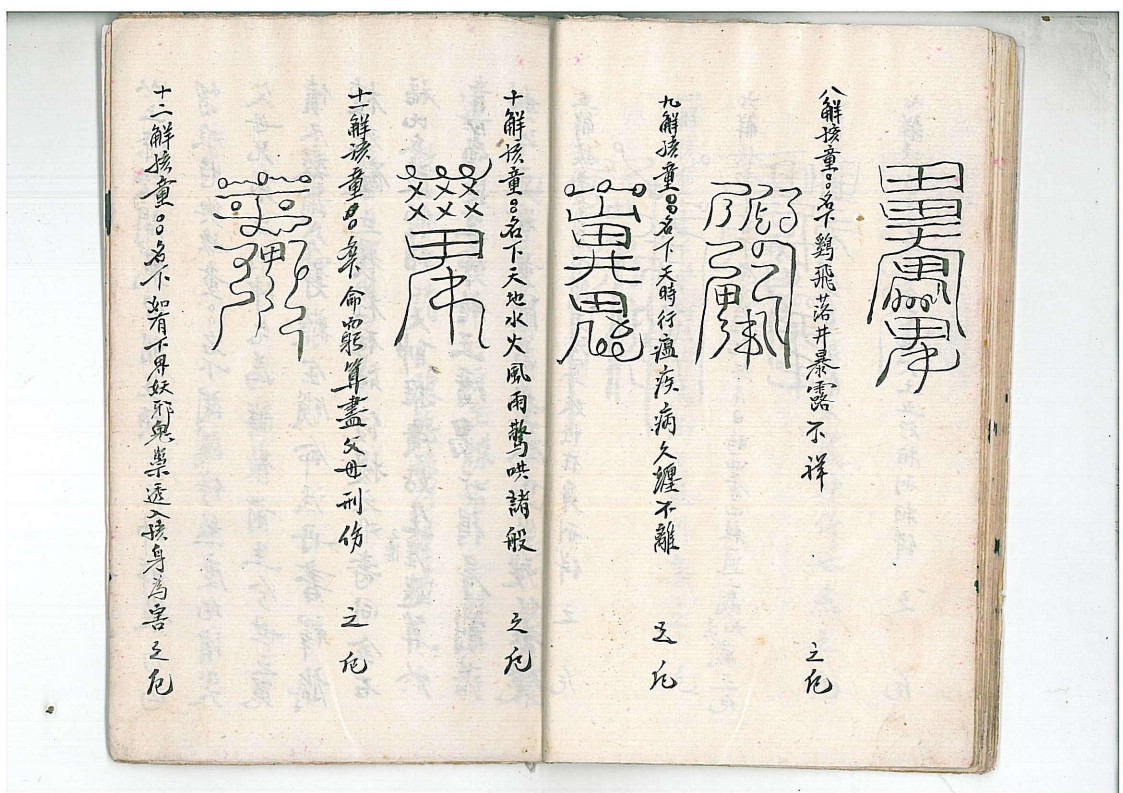 八解孩童〻名下鷄飛落井暴露不祥　之厄
九解孩童〻名下天時行瘟疾病久纏不離　之厄
十解孩童〻名下天地水火風雨驚哄諸般　之厄
十一解孩童〻命窮算盡父母刑伤　之厄
十二解孩童〻名下如有下界妖邪鬼祟透入孩身為害之厄